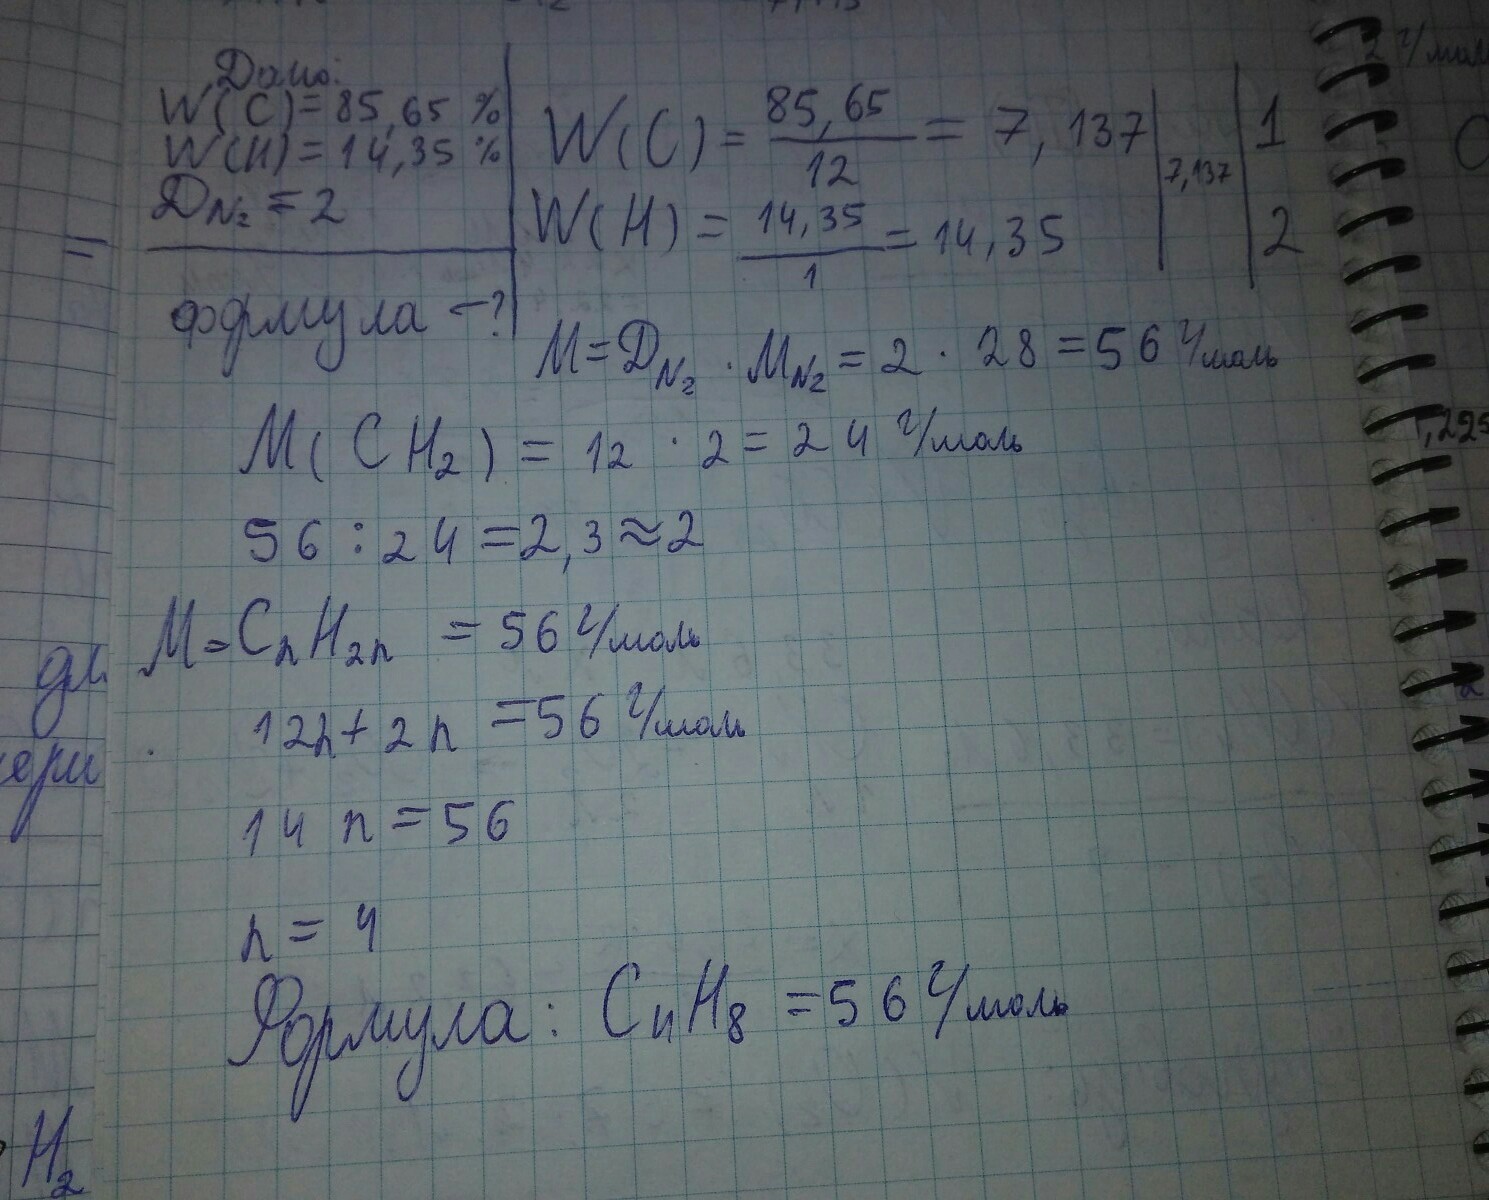 Дано:
W(C) = 85,65 %
W(H) = 14,35 %
D N₂ = 2
формула - ?
W(C) = 85,65 / 12 = 7,137 | 7,137 | 1
W(H) = 14,35 / 1 = 14,35 | | 2
M = D N₂ · M N₂ = 2 · 28 = 56 г/моль
M(CH₂) = 12 · 2 = 24 г/моль
56 : 24 = 2,3 ≈ 2
M = CₙH₂ₙ = 56 г/моль
12n + 2n = 56 г/моль
14 n = 56
n = 4
Формула: C₄H₈ = 56 г/моль
=
H₂
2 г/моль
C
2